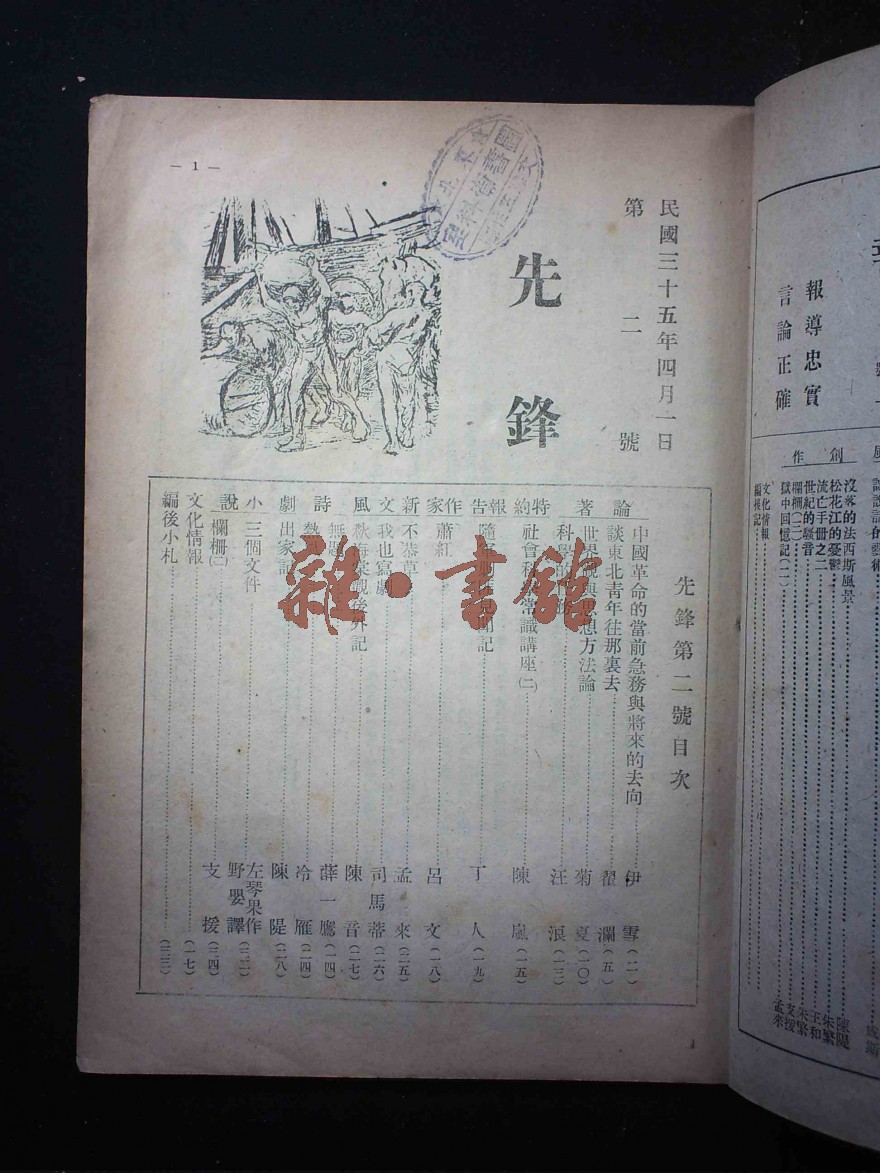 — 1 —
民國三十五年四月一日
第二號
先鋒
先鋒第二號目次
論著
中國革命的當前急務與將來的去向 伊雪(二)
談東北青年往那裏去 翟瀾(五)
世界觀與思想方法論 菊夏(一〇)
科學的 汪浪(一三)
特約
社會科學常識講座(二) 陳嵐(一五)
報告
隨 聞記 丁人(一九)
作家
蕭紅 呂文(一八)
新文風
不恭草 孟來(二五)
我也寫劇 司馬蒂(二六)
秋海棠觀後外記 陳音(二七)
詩
無題 薛一鷹(一四)
熱 冷雁(二四)
劇
出家 陳隄(二八)
小說
三個文件 左琴果作 野嬰譯(三二)
欄柵(二) 支援(三四)
文化情報 (一七)
編後小札 (三三)
雜·書館
報導忠實
言論正確
創作
沒落的法西斯風景 陳隄
松花江的憂鬱 朱繁
流亡手冊之二 王和
世紀的騷音 朱繁
欄柵(一) 支援
獄中回憶記(一) 孟來
文化情報
編後記